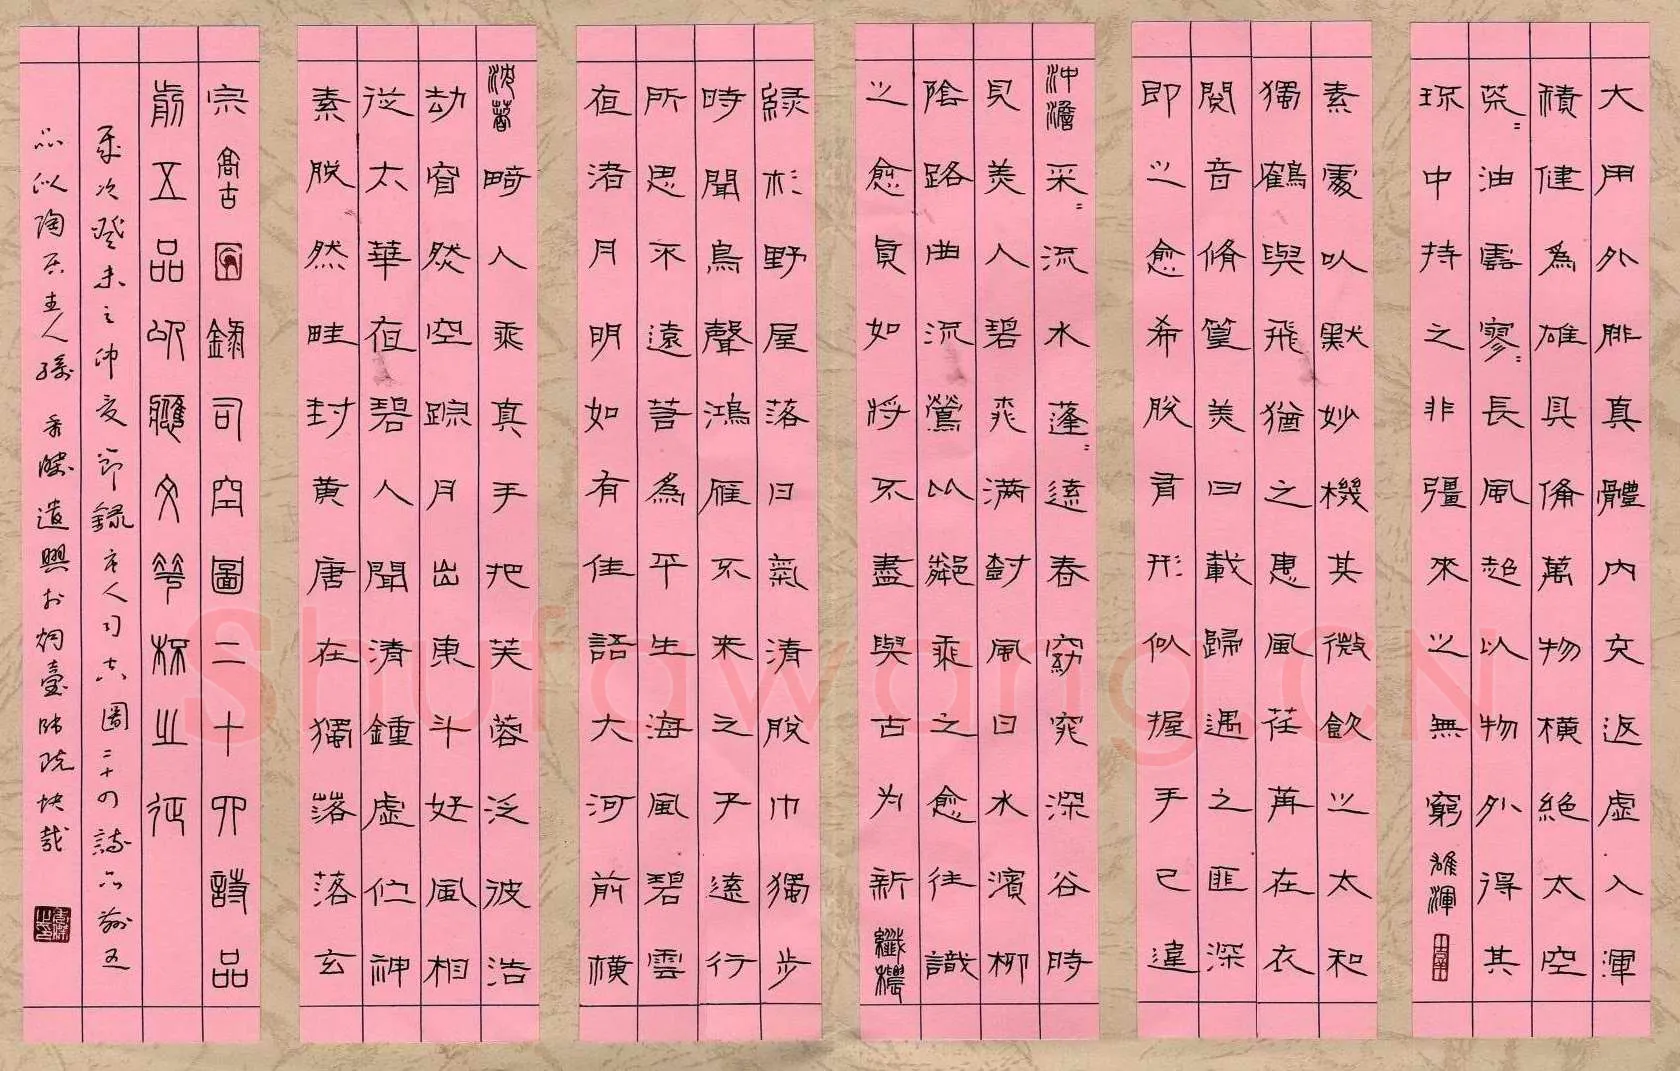 大用外腓真體內充返虛入渾
積健為雄具備萬物橫絕太空
荒=油雲寥=長風超以物外得其
环中持之非彊來之無窮 雄渾
素處以默妙機其微飲之太和
獨鶴與飛猶之惠風荏苒在衣
閱音脩篁美曰載歸遇之匪深
即之愈希脫有形似握手已違
沖澹 采=流水蓬=遠春窈窕深谷時
見美人碧桃滿樹風日水濱柳
陰路曲流鶯比鄰乘之愈往識
之愈真如將不盡與古為新 纖穠
綠杉野屋落日氣清脫巾獨步
時聞鳥聲鴻雁不來之子遠行
所思不遠若為平生海風碧雲
夜渚月明如有佳語大河前橫
沈著 畸人乘真手把芙蓉泛彼浩
劫窅然空踪月出東斗好風相
從太華夜碧人聞清鍾虛佇神
素脫然畦封黃唐在獨落落玄
宗 高古 錄司空圖二十四詩品
前五品以應文華杯之征
歲次癸未之仲夏節錄唐人司空圖二十四詩品前五
品以陶主人孫遣興於烟臺師院
Shufawang.CN